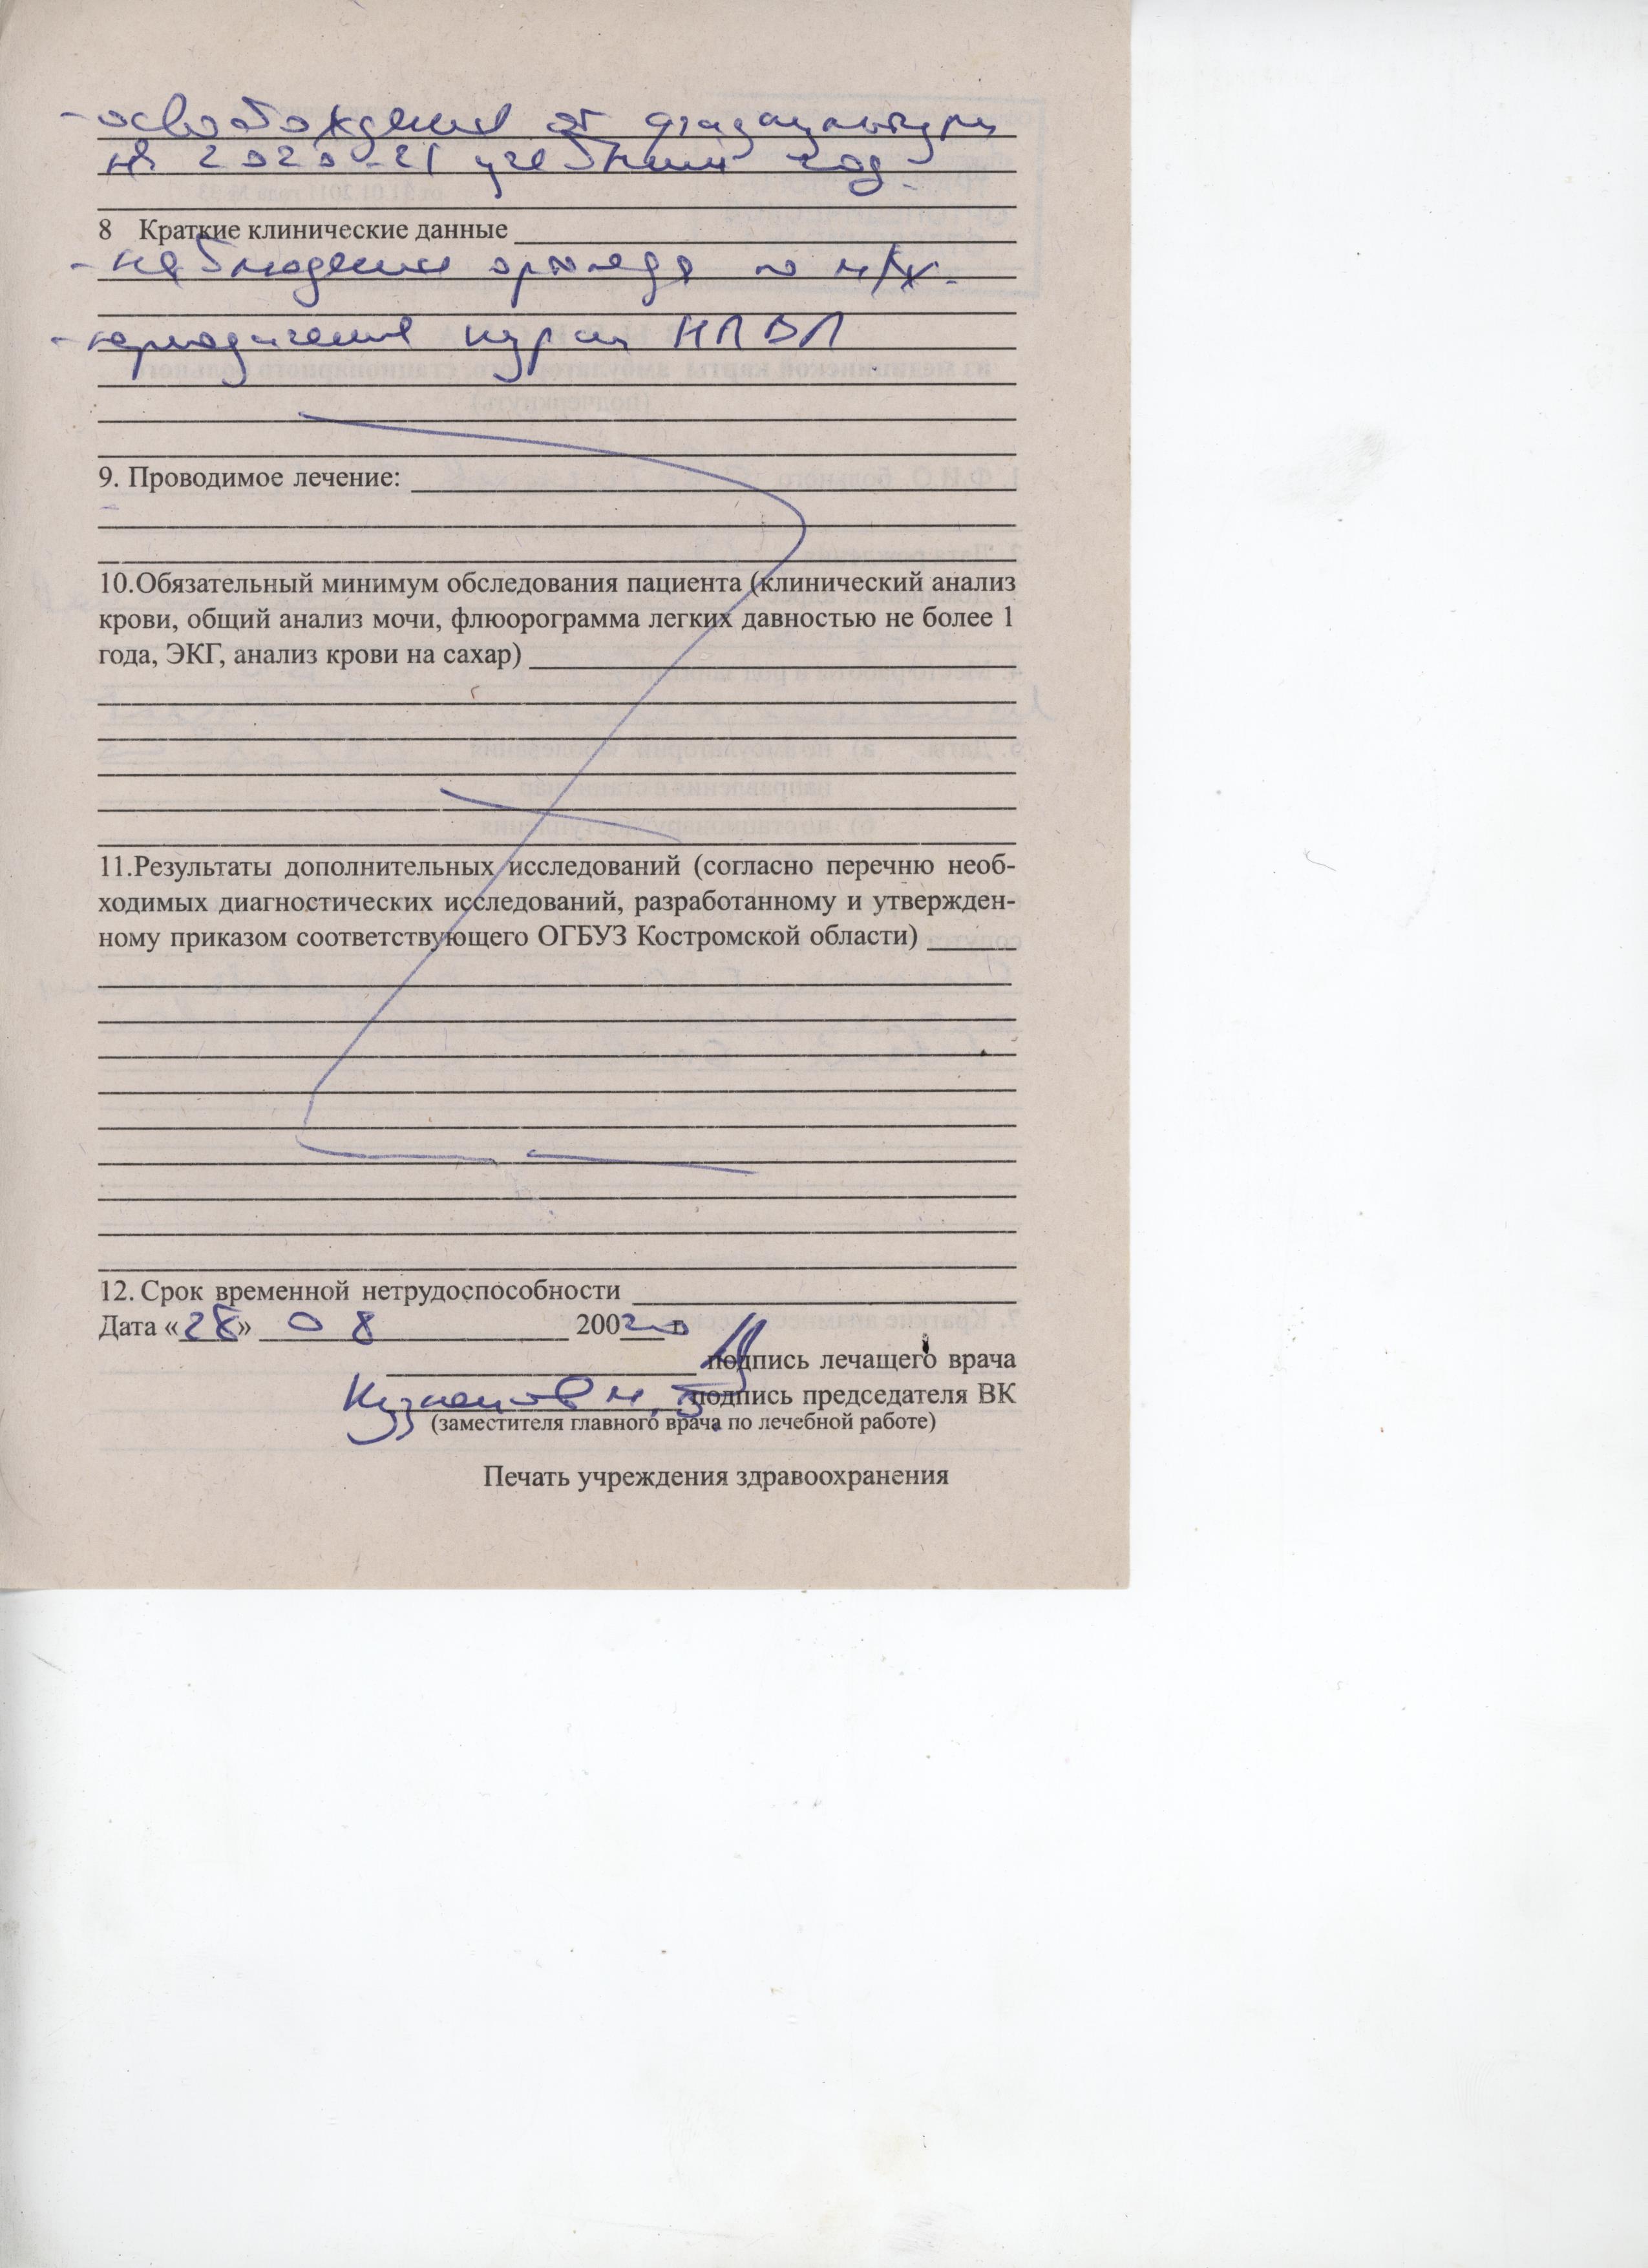 - освобождение от физкультуры
на 2020-21 учебный год.
8 Краткие клинические данные
- наблюдение ортопеда по м/ж.
- периодически курсы НПВП
9. Проводимое лечение:
10.Обязательный минимум обследования пациента (клинический анализ
крови, общий анализ мочи, флюорограмма легких давностью не более 1
года, ЭКГ, анализ крови на сахар)
11.Результаты дополнительных исследований (согласно перечню необ-
ходимых диагностических исследований, разработанному и утвержден-
ному приказом соответствующего ОГБУЗ Костромской области)
12. Срок временной нетрудоспособности
Дата «28» 08 20020 г.
подпись лечащего врача
Кузнецов М.В. подпись председателя ВК
(заместителя главного врача по лечебной работе)
Печать учреждения здравоохранения